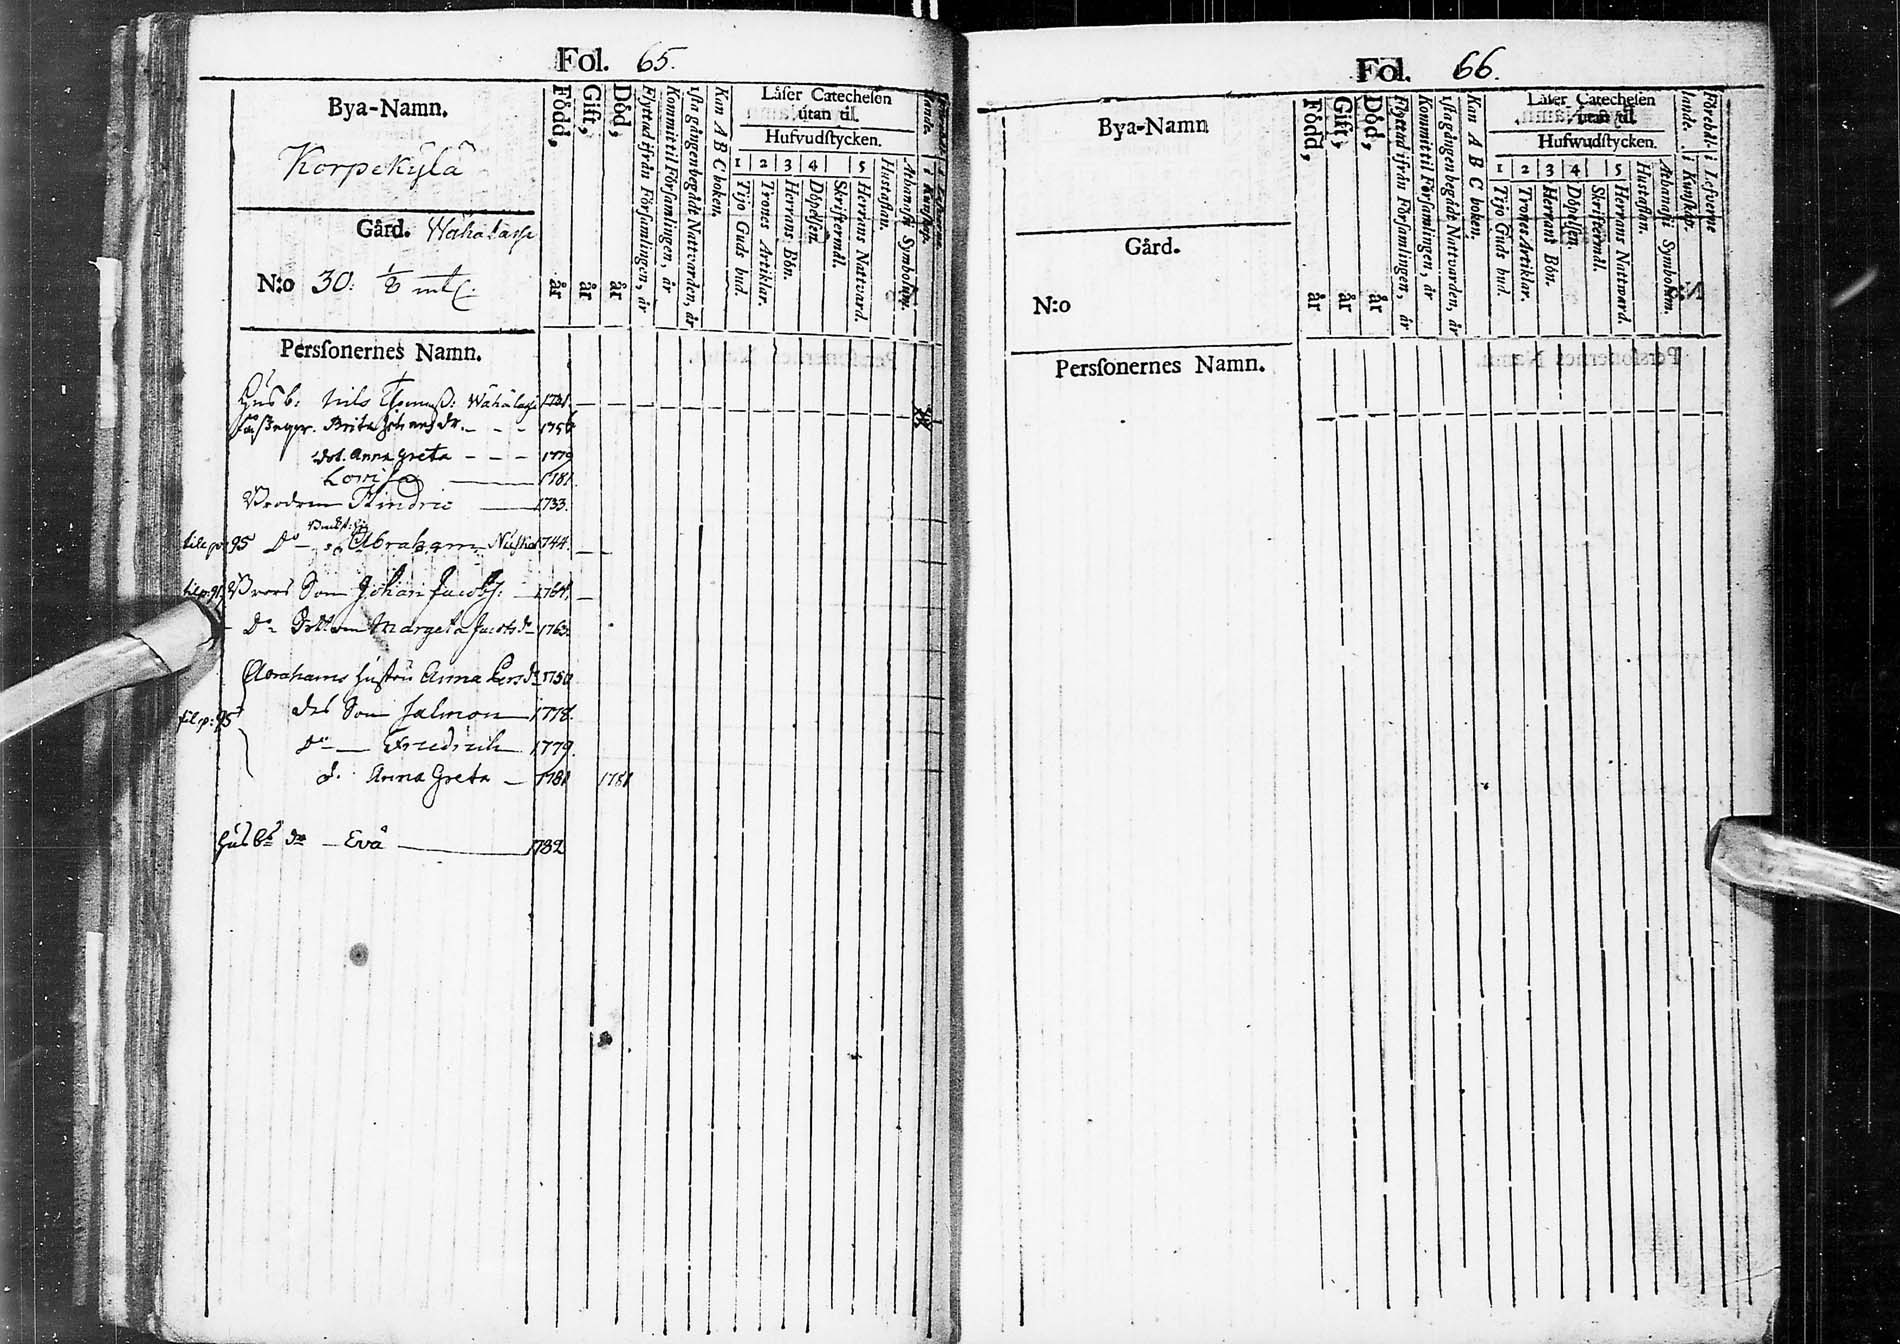 Fol. 65.
Bya-Namn.
Korpekÿlä
Gård. Wähälassi
N:o 30. 1/8 mtl.
Född, år
Gift, år
Död, år
Flyttad ifrån Församlingen, år
Kommit til Församlingen, år
1sta gången begådt Nattvarden, år
Kan A B C boken.
Läser Catechesen utan til.
Hufvudstycken.
1 2 3 4 5
Tijo Guds bud.
Trones Artiklar.
Herrans Bön.
Döpelsen.
Skriftermål.
Herrans Nattvard.
Hustaflan.
Athanasii Symbolum.
Perssonernes Namn.
Husb: Nils Thomass: Wähälassi 1731.
Brita Johansdr. - - - 1756
dot. Anna Greta - - - 1779
Lovisa 1781
Brodren Hindric 1733.
til p: 95 Do Abraham 1744.
til p: 95 Brors Son Johan Jacobs: 1764.
Do Dottren Margeta Jacobsdr 1763.
Abrahams hustru Anna Persdr 1750
til p: 95 des Son Salmon 1778.
Do Friedrich 1779.
d. Anna Greta 1781 1781
Husbs dr Eva 1782
Fol. 66.
Bya-Namn
Gård.
N:o
Född, år
Gift, år
Död, år
Flyttad ifrån Församlingen, år
Kommit til Församlingen, år
1sta gången begådt Nattvarden, år
Kan A B C boken.
Läser Catechesen utan til.
Hufwudstycken.
1 2 3 4 5
Tijo Guds bud.
Trones Artiklar.
Herrans Bön.
Döpelsen.
Skriftermål.
Herrans Nattward.
Hustaflan.
Athanasii Symbolum.
Förehållande. i Kunskap.
i Lefverne
Perssonernes Namn.